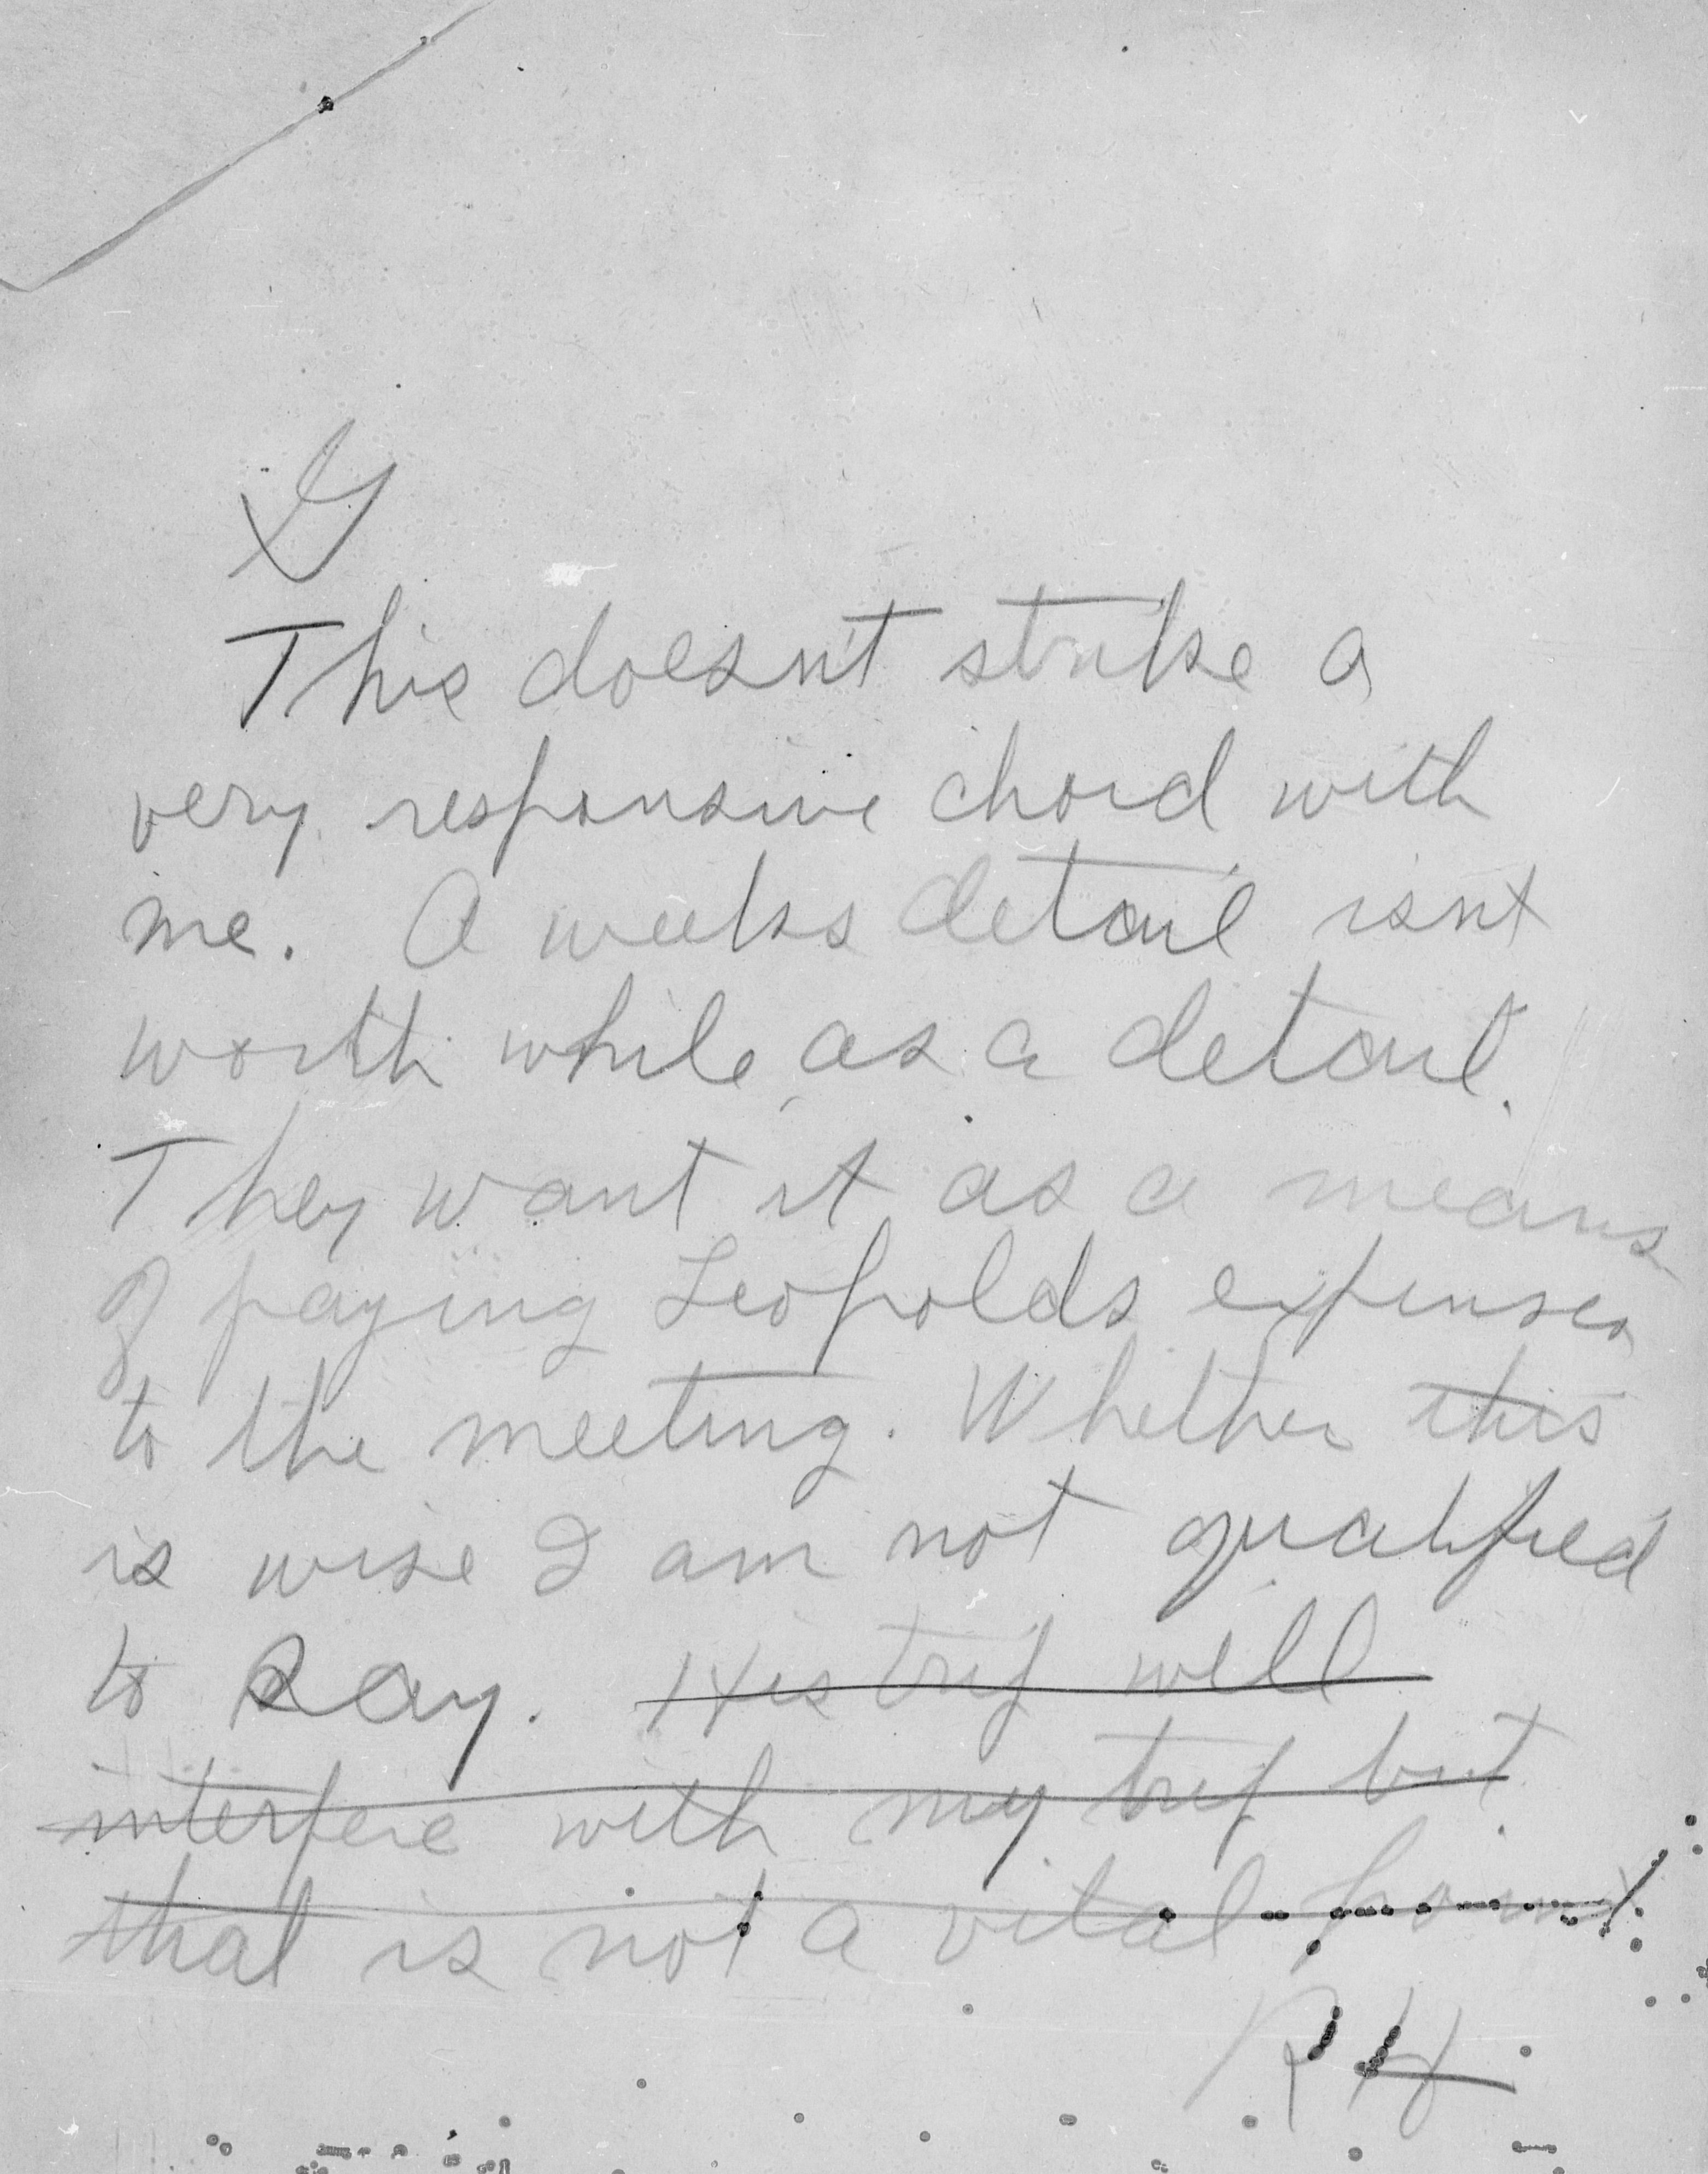 G
This doesn't strike a
very responsive chord with
me. A weeks detail isnt
worth while, as a detail.
They want it as a means
of paying Leopolds expenses
to the meeting. Whether this
is wise I am not qualified
to say. His trip will
interfere with my trip but
that is not a vital point.
RH